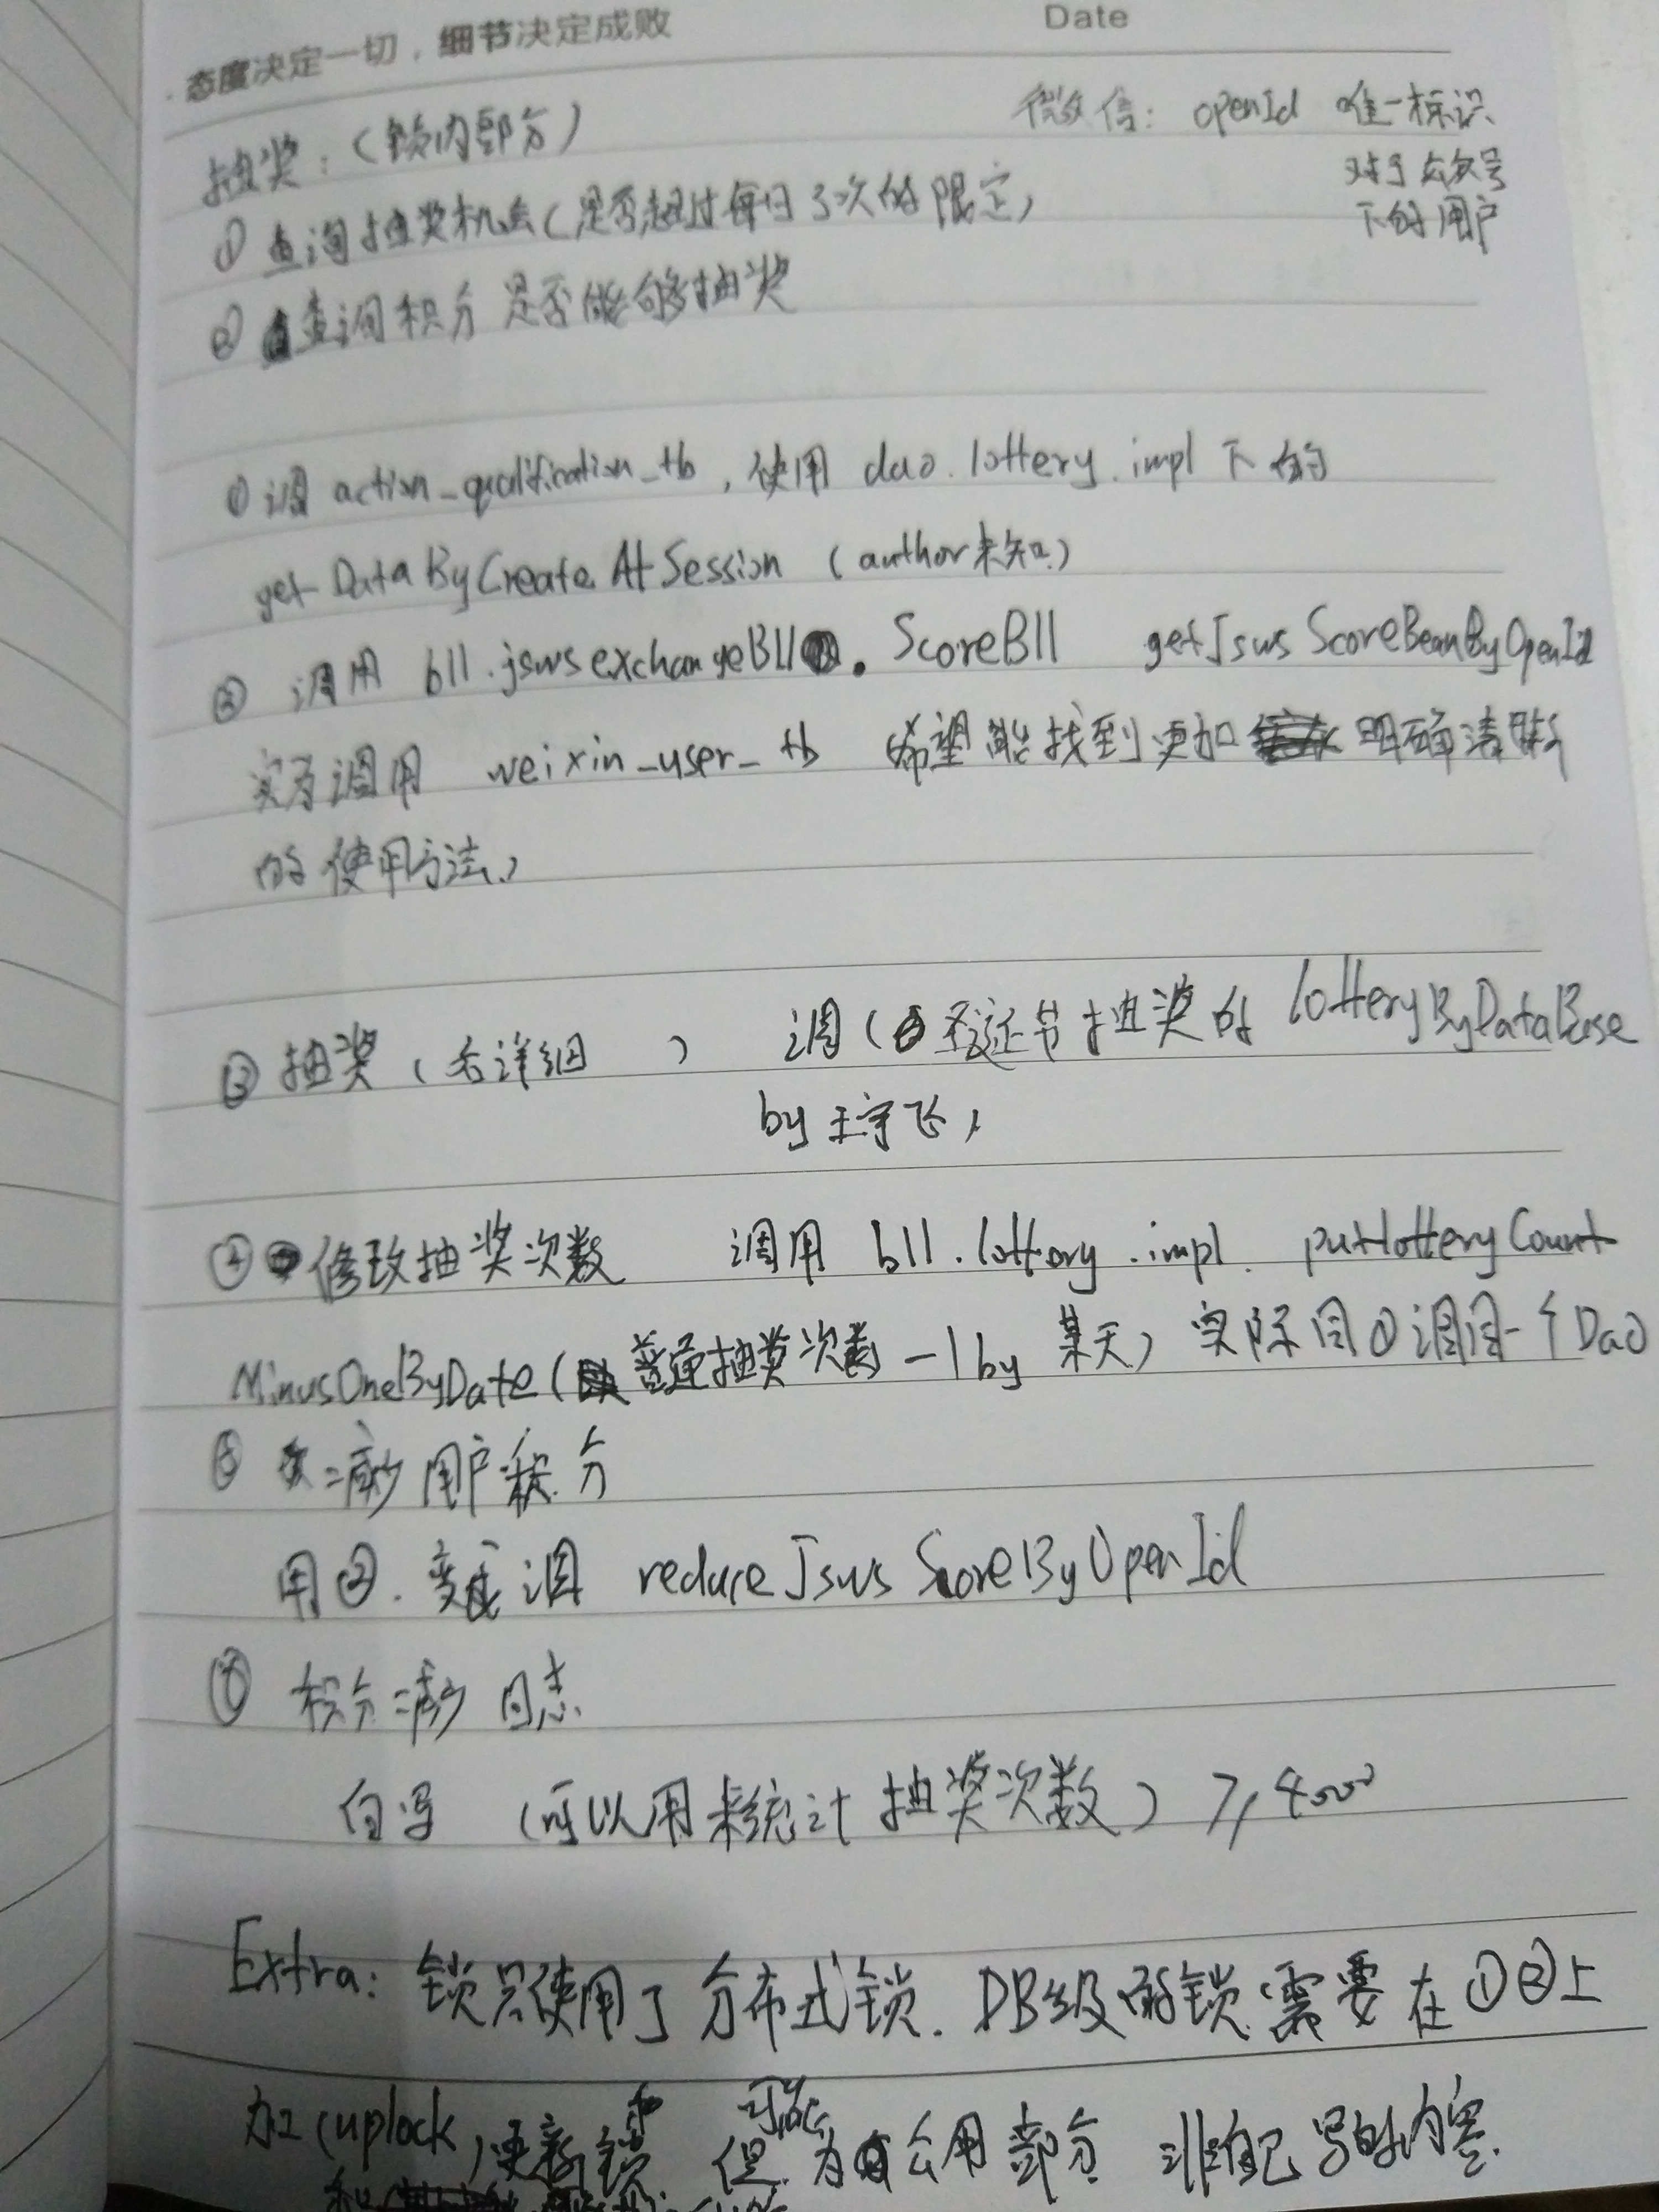 态度决定一切，细节决定成败
Date
抽奖：（锁内部分）
微信：openId 唯一标识
对于公众号
下的用户
① 查询抽奖机会（是否超过每日3次的限定）
② 查询积分是否能够抽奖
① 调 action_qualification_tb，使用 dao.lottery.impl 下的
getDataByCreateAtSession （author未知）
② 调用 bll.jswsexchangeBll. ScoreBll getJswsScoreBeanByOpenId
实为调用 weixin_user_tb 希望能找到更加 明确清晰
的使用方法）
③ 抽奖（看详细 ） 调（圣诞节抽奖的 lotteryByDataBase
by 王宇飞）
④ 修改抽奖次数 调用 bll.lottery.impl. putlotteryCount
MinusOneByDate（普通抽奖次数 -1 by 某天）实际同①调同一个Dao
⑤ 减少用户积分
用②. 变成调 reduceJswsScoreByOpenId
⑥ 积分减少日志
自写 （可以用来统计抽奖次数）
Extra: 锁只使用了分布式锁. DB级的锁需要在①②上
加（uplock）更新锁 但 可能 为公用部分 非自己写的内容.